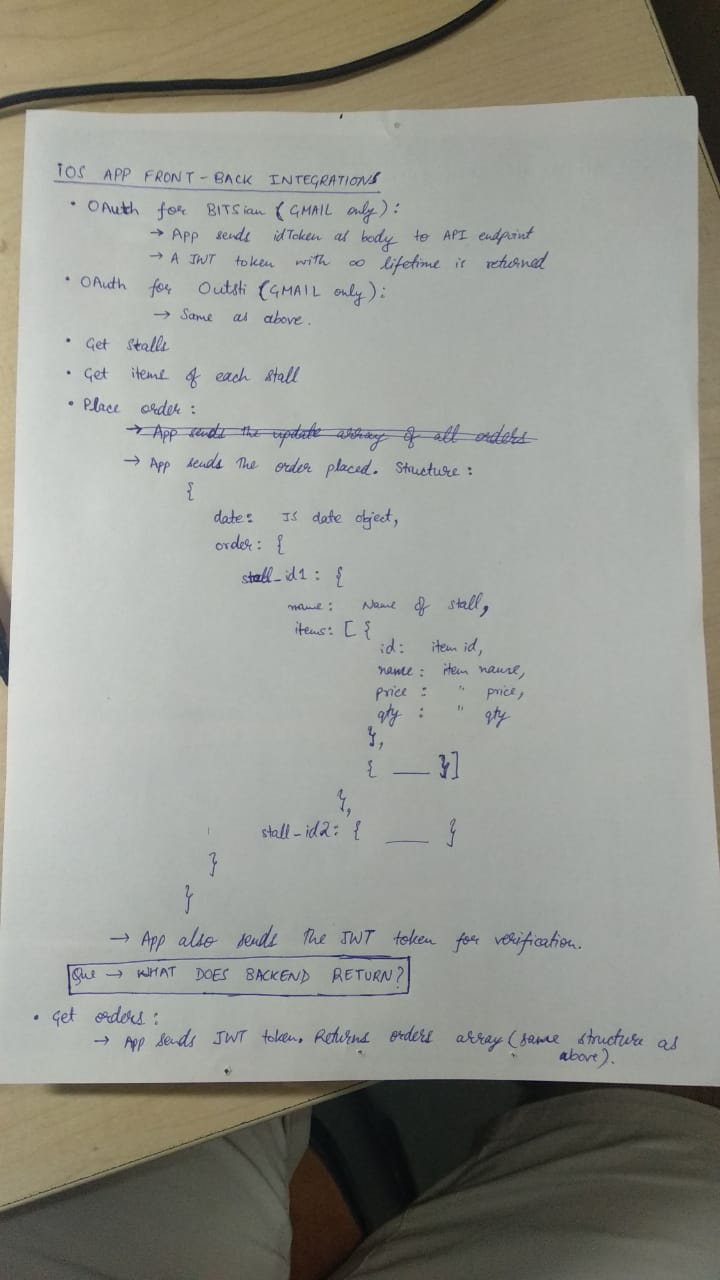 iOS APP FRONT-BACK INTEGRATIONS
• OAuth for BITSian (GMAIL only):
→ App sends idToken as body to API endpoint
→ A JWT token with ∞ lifetime is returned
• OAuth for Outsti (GMAIL only):
→ Same as above.
• Get Stalls
• Get items of each stall
• Place order:
→ App sends the update array of all orders
→ App sends the order placed. Structure:
{
date: JS date object,
order: {
stall_id1: {
name: Name of stall,
items: [{
id: item id,
name: item name,
price: " price,
qty: " qty
},
{ __ }]
},
stall-id2: { __ }
}
}
→ App also sends the JWT token for verification.
Que → WHAT DOES BACKEND RETURN?
• Get orders:
→ App sends JWT token. Returns orders array (same structure as
above).